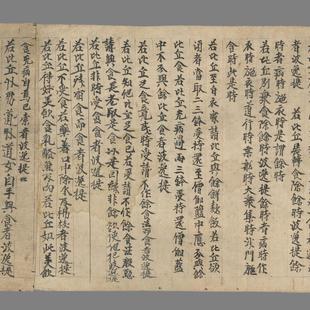 者波逸提 若比丘展轉食除餘時波逸提餘
時者病時施衣時是謂餘時
若比丘別衆食除餘時波逸提餘時者病時作
衣時施衣時道行時乘船時大衆集時沙門施
食時此是時
若比丘至白衣家請比丘與餅麨飯若比丘欲
須者當取二三鉢受持還至僧伽藍中應分與餘
比丘食若比丘無病過兩三鉢受持還僧伽藍
中不分與餘比丘食者波逸提
若比丘足食竟或時受請不作餘食法而食者波逸提
若比丘知他比丘足食已若受請不作餘食法殷勤
請與食長老取是食以是因緣非餘欲使他犯波逸提
若比丘非時受食食者波逸提
若比丘殘宿食而食者波逸提
若比丘不受食若藥著口中除水及楊枝者波逸提
若比丘得好美飲食乳酪魚及肉若比丘如此美飲
食無病自爲己索者波逸提
若比丘外道男外道女自手與食者波逸提